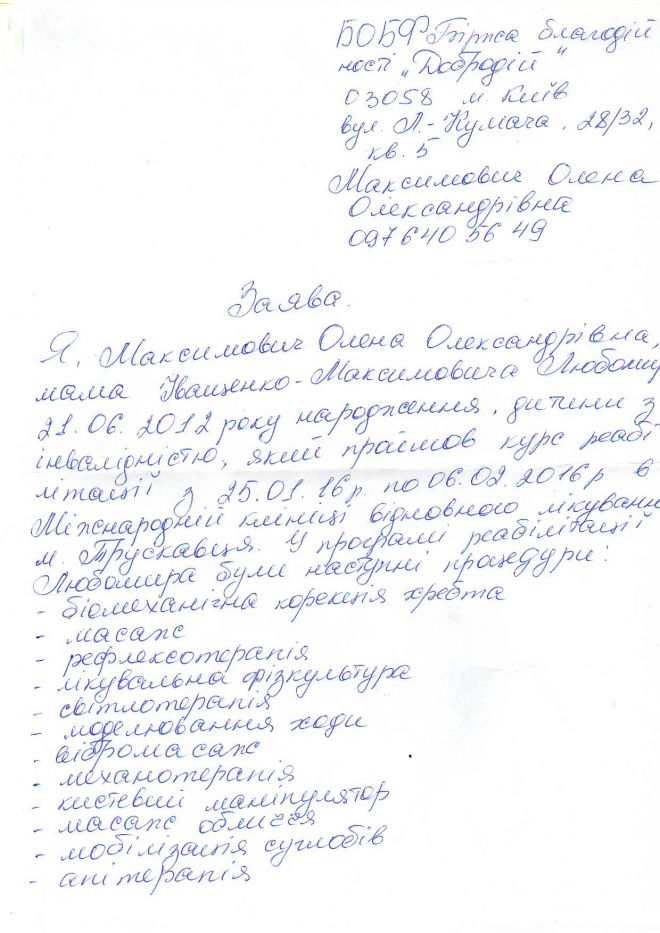 БОБФ Біржа благодій
ності „Добродій"
03058 м. Київ
вул. Л.-Кумача, 28/32,
кв. 5
Максимович Олена
Олександрівна
097 640 56 49
Заява.
Я, Максимович Олена Олександрівна,
мама Іващенко-Максимовича Любоми
21.06.2012 року народження, дитини з
інвалідністю, який пройшов курс реабі
літації з 25.01.16р. по 06.02.2016р в
Міжнародній клініці відновного лікуванн
м. Трускавця. У програмі реабілітації
Любомира були наступні процедури:
- біомеханічна корекція хребта
- масаж
- рефлексотерапія
- лікувальна фізкультура
- світлотерапія
- моделювання ходи
- вібромасаж
- механотерапія
- кистевий маніпулятор
- масаж обличчя
- мобілізація суглобів
- апітерапія